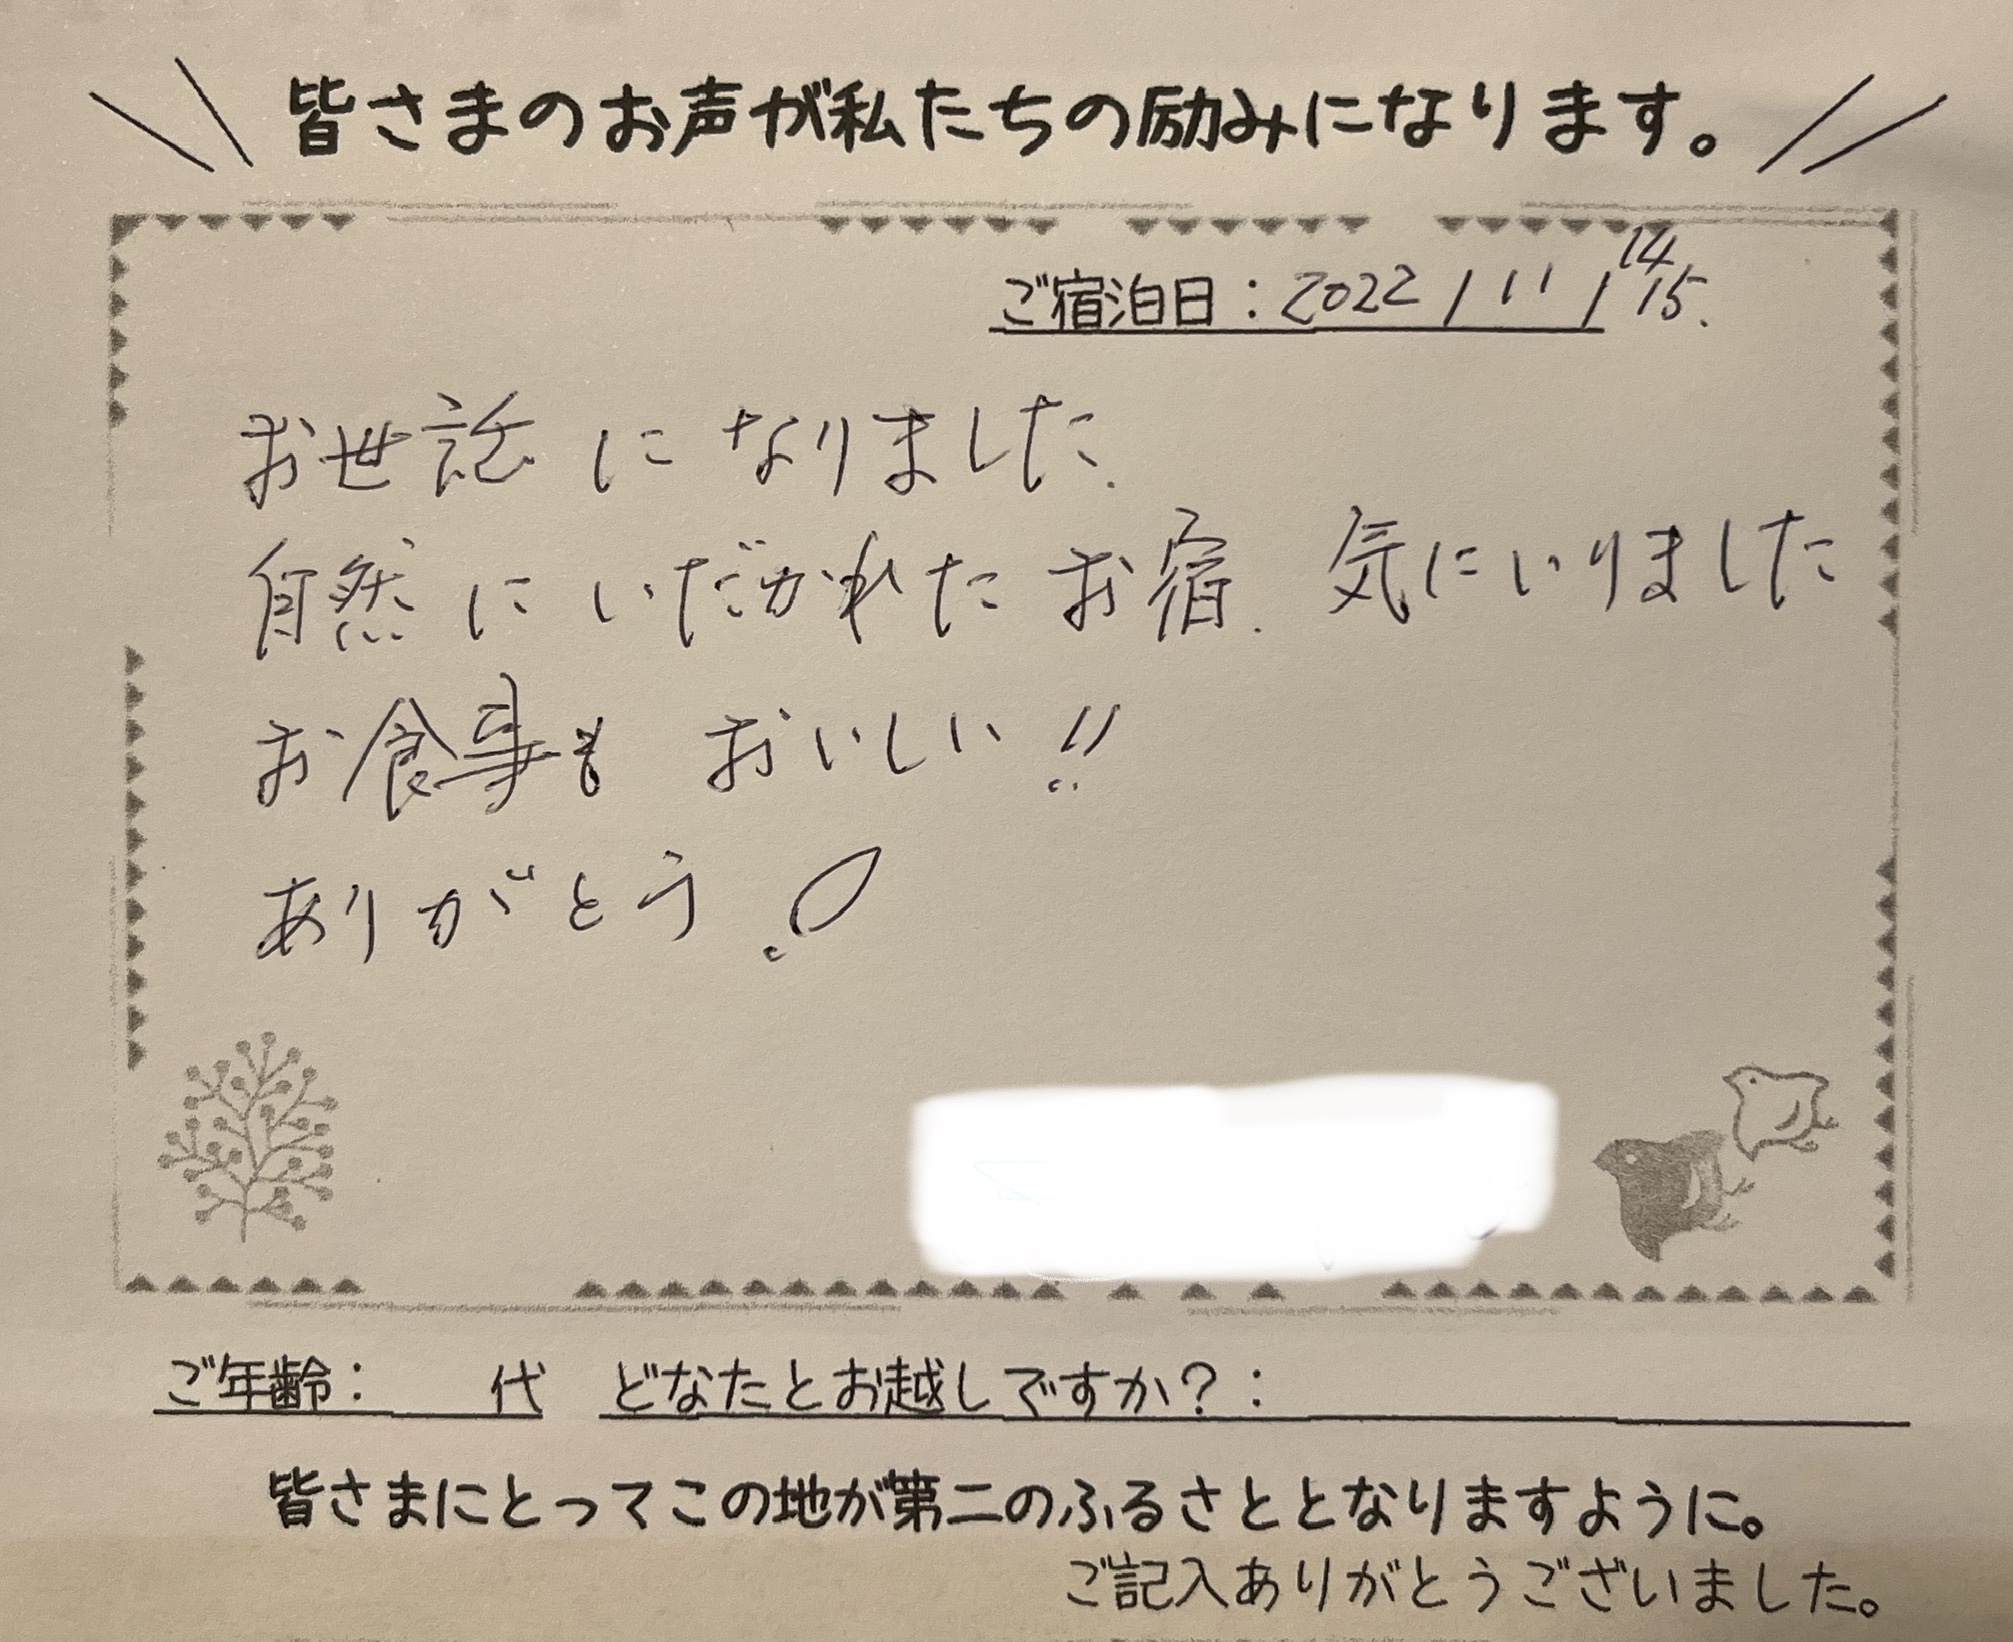 皆さまのお声が私たちの励みになります。
ご宿泊日：2022/11/14 15.
お世話になりました.
自然にいだかれたお宿. 気にいりました
お食事も おいしい!!
ありがとう!
ご年齢：　　代　どなたとお越しですか？：
皆さまにとってこの地が第二のふるさととなりますように。
ご記入ありがとうございました。